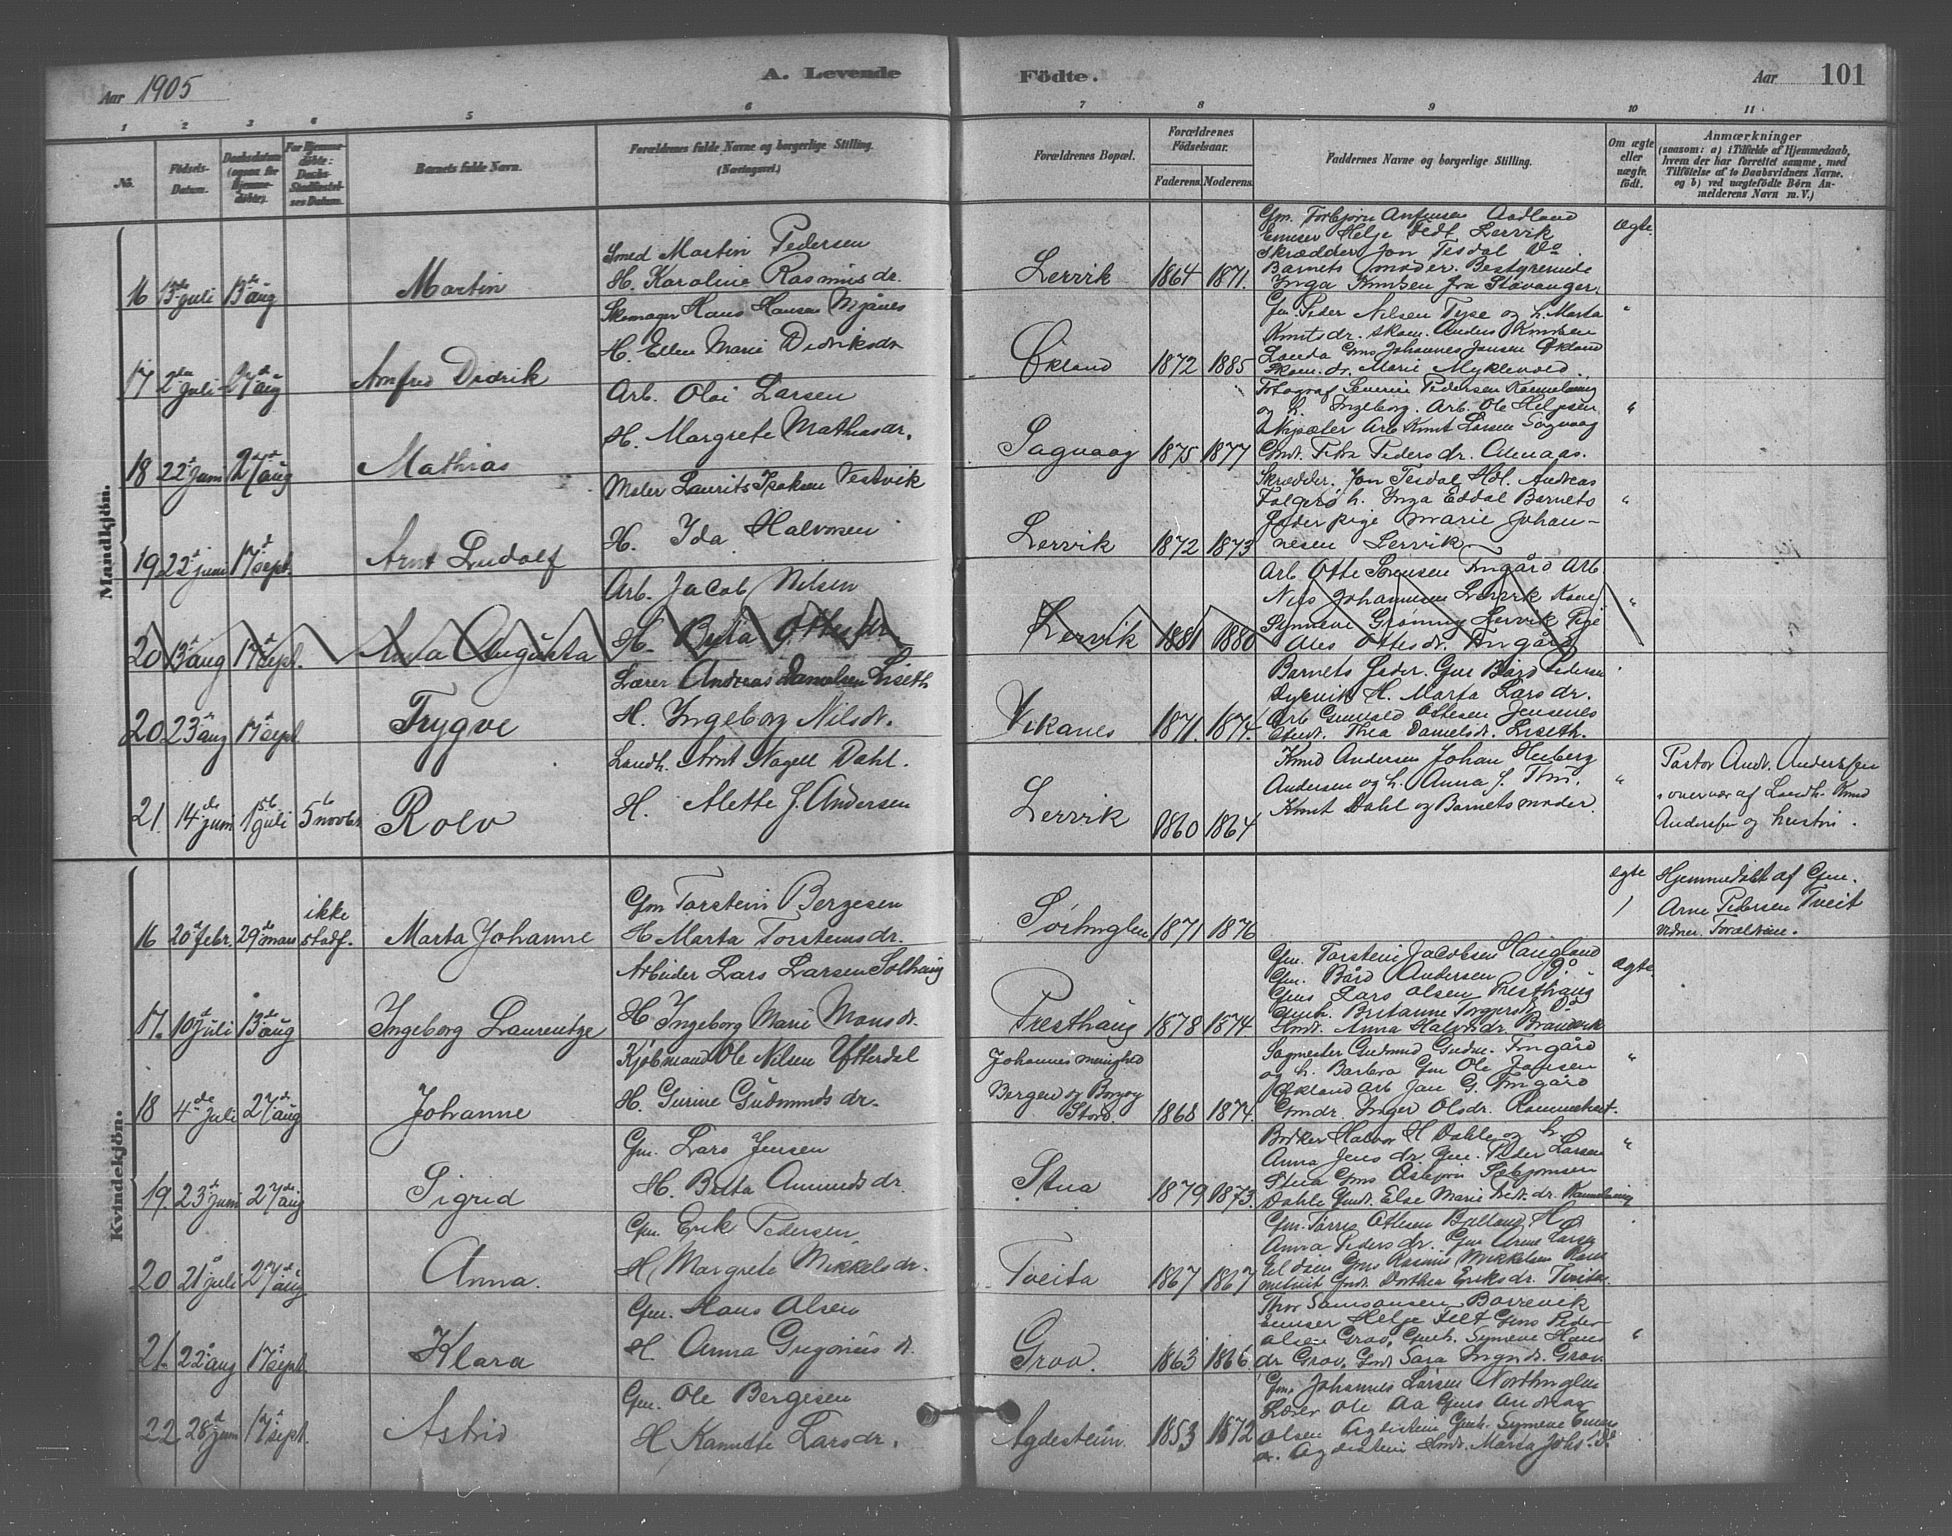 Aar 1905
A. Levende
Födte.
Aar 101
1 2 3 4 5 6
7 8 9 10 11
No.
Födsels-Datum.
Daabsdatum (ogsaa for Hjemmedöbte).
For Hjemmedöbte: Daabs Stadfæstelses Datum.
Barnets fulde Navn.
Forældrenes fulde Navne og borgerlige Stilling. (Næringsvei.)
Forældrenes Bopæl.
Forældrenes Födselsaar.
Faderens. Moderens.
Faddernes Navne og borgerlige Stilling.
Om ægte eller uægte födt.
Anmærkninger
(saasom: a) i Tilfælde af Hjemmedaab, hvem der har forrettet samme, med Tilföielse af to Daabsvidners Navne. og b) ved uægtefödte Börn Anmelderens Navn m. V.)
Mandkjön.
16 13de juli 13de aug Martin
Smed Martin Pedersen
H. Karoline Rasmusdr.
Lervik 1864 1871.
Gm. Torbjørn Anfinsen Aadland
Helje Fedt Lervik
Skrædder Jon Tesdal Do
Barnets moder. Bestyrende
Inga Knutsen fra Stavanger.
ægte
17 2den juli 27de aug Arnfred Didrik
Skomager Hans Hansen Mjånes
H. Ellen Marie Didriksdr
Økland 1872 1885
Gm. Peder Nilsen Tyse og h. Marta
Knutsdr. skom. Anders Knutsen
Landa Gms Johannes Jansen Økland
Marie Myklevold.
"
18 22de juni 27de aug Mathias
Arb. Oloi Larsen
H. Margrete Mathiasdr.
Sagvaag 1875 1877
Fotograf Severin Pedersen
og h. Ingeborg. Arb. Ole Helgesen
Arb Knut Larsen Sagvaag
Pedersdr. Almaas.
"
19. 22de juni 17de sept. Arnt Ludolf
Maler Laurits Isaksen Vestvik
H. Ida Halvorsen
Lervik 1872 1873
Skrædder. Jon Tesdal Hdl. Andreas
Falgerø h. Inga Eddal Barnets
Fader pige Marie Johan-
nesen Lervik
"
20 13de aug 17de sept. Anna Augusta
Arb. Jacob Nilsen
H. Berta Ottesdr.
Lervik 1881 1880
Arb Otte Sørensen Tngård Arb
Nils Johannesen Lervik Kone
Synneve Gronning Lervik Pige
Ottesdr. Tngård
"
20 23de aug 17de sept Trygve
Lærer Andreas Danielsen Liseth
H. Ingeborg Nilsdr.
Vikanes 1871. 1874.
Barnets Fader. Gm Bård Pedersen
Dykevik H. Marta Larsdr.
Arb Gunvald Ottesen Jensenes
Thea Danielsdr. Liseth.
21. 14de juni 1ste juli 5te novbr. Rolv
Landh. Arnt Nagell Dahl.
H. Alette J. Andersen
Lervik 1860 1864
Knud Andersen Johan Heiberg
Andersen og h. Anna J.
Knut Dahl og Barnets moder.
"
Pastor Andr. Anderssen
overvær af Landh. Knud
Anderssen og hustru.
Kvindekjön.
16 20de febr. 29de mars ikke stadf. Marta Johanne
Gm Torstein Bergesen
H Marta Torsteinsdr.
1871 1876
ægte
Hjemmedöbt af Gm.
Arne Pedersen Tveit
vidner. Forældrene.
17. 10de juli 13de aug Ingeborg Laurentze
Arbeider Lars Larsen Solhaug
H Ingeborg Marie Monsdr.
Presthaug 1878 1874.
Gm. Torstein Jacobsen Haugland
Gm. Bård Andersen Do
Gms Lars Olsen Presthaug
Britanne Torgersdr Do
Anna Halvdr.
ægte
18 4de juli 27de aug Johanne
Kjöbmand Ole Nilsen Ytterdal
H. Gurine Gudmundsdr.
Johannes menighed
Bergen og Borgvåg
Stord
1868 1874.
Sagmester Gudmund Gudm. Tngård
og h. Barbra Gm Ole Jansen
Økland Arb Jan G. Tngård
Inger Olsdr.
"
19. 23de juni 27de aug Sigrid
Gm. Lars Jensen
H. Brita Aamundsdr.
Stua 1879 1873.
Bødker Halvor H Dahle og h
Anna Jensdr Gm. Peder Larsen
Stua Gms Asbjørn Sæbjørnsen
Dahle Gmdr. Else Marie
"
20 21de juli 27de aug. Anna.
Gm. Erik Pedersen
H Margrete Mikkelsdr.
Tveita 1867 1867
Gm. Torris Ottesen H
Anna Pedersdr. Gm Arne Larsen
Gms Rasmus Mikkelsen
Gmdr. Dorthea Eriksdr. Tveita
21. 22de aug 17de sept. Klara
Gm. Hans Olsen
H Anna Gregoriusdr.
Grov. 1863 1866.
Thor Samsonsen Borrevik
Helje Felt Gms Peder
Olsen Grov, Gmh. Synneve Hans
dr Grov. Gmdr Sara Grov.
"
22. 28de juni 17de sept. Astrid
Gm. Ole Bergesen
H Kanutte Larsdr.
Agdestein 1853 1872
Gm. Johannes Larsen Nordhuglen
Lærer Ole Aa Gms Andreas
Olsen Agdestein Gmh. Synneve
dr. Agdestein Gmdr. Marta Johs.